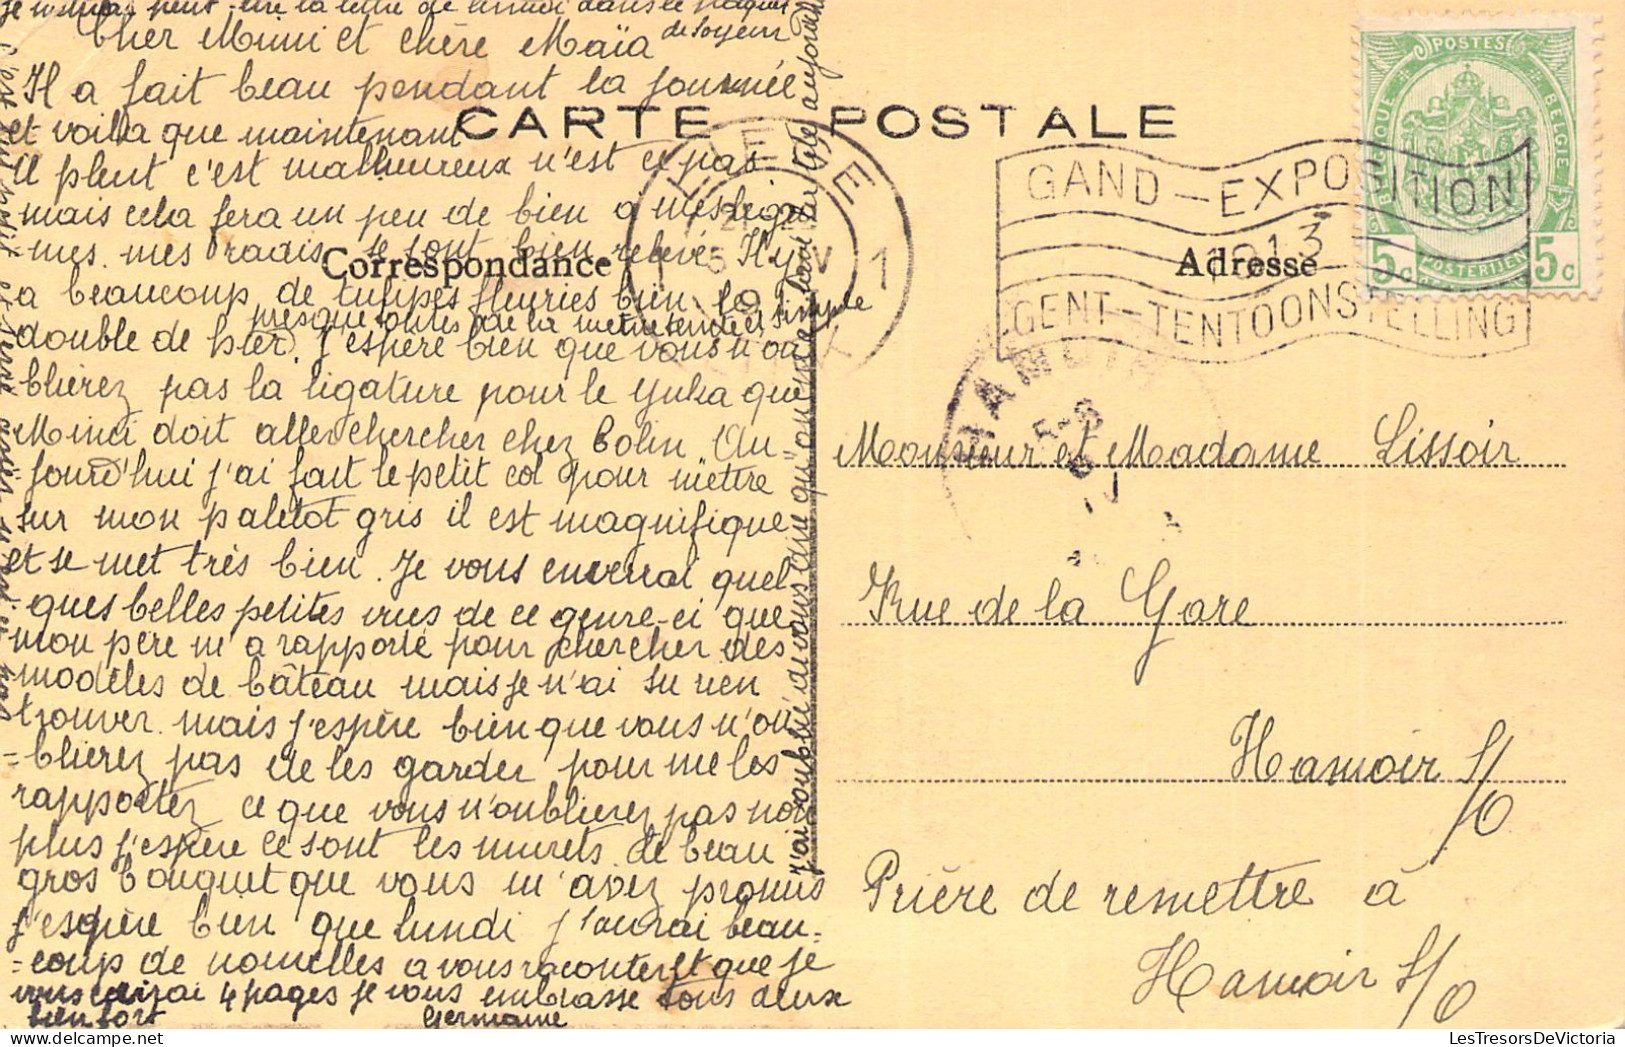 Cher Mimi et chère Maïa
Il a fait beau pendant la journée
et voilla que maintenant
il pleut c'est malheureux n'est ce pas
mais cela fera un peu de bien à
mes radis se sont bien relevé Il y
a beaucoup de tulipes fleuries bien le
presque toutes de la même simple
double de hier. J'espère bien que vous n'ou
blierez pas la ligature pour le yuka que
Mimi doit aller chercher chez Colin. Au-
jourd'hui j'ai fait le petit col pour mettre
sur mon paletot gris il est magnifique
et se met très bien. Je vous enverrai quel-
ques belles petites vues de ce genre-ci que
mon père m'a rapporté pour chercher des
modèles de bâteau mais je n'ai su rien
trouver mais j'espère bien que vous n'ou
=blierez pas de les garder pour me les
rapporter ce que vous n'oublierez pas non
plus j'espère ce sont les murets de beau
gros bouquet que vous m'avez promis
j'espère bien que lundi j'aurai beau=
=coup de nouvelles a vous raconter et que je
vous 4 pages je vous embrasse tous deux
bien fort
Germaine
CARTE POSTALE
Correspondance
Adresse
LIEGE
1
GAND-EXPOSITION
1913
GENT-TENTOONSTELLING
POSTES
BELGIQUE
BELGIE
POSTERIJEN
5c 5c
HAMOIR
Monsieur et Madame Lissoir
Rue de la Gare
Hamoir S/O
Prière de remettre à
Hamoir S/O
LesTresorsDeVictoria